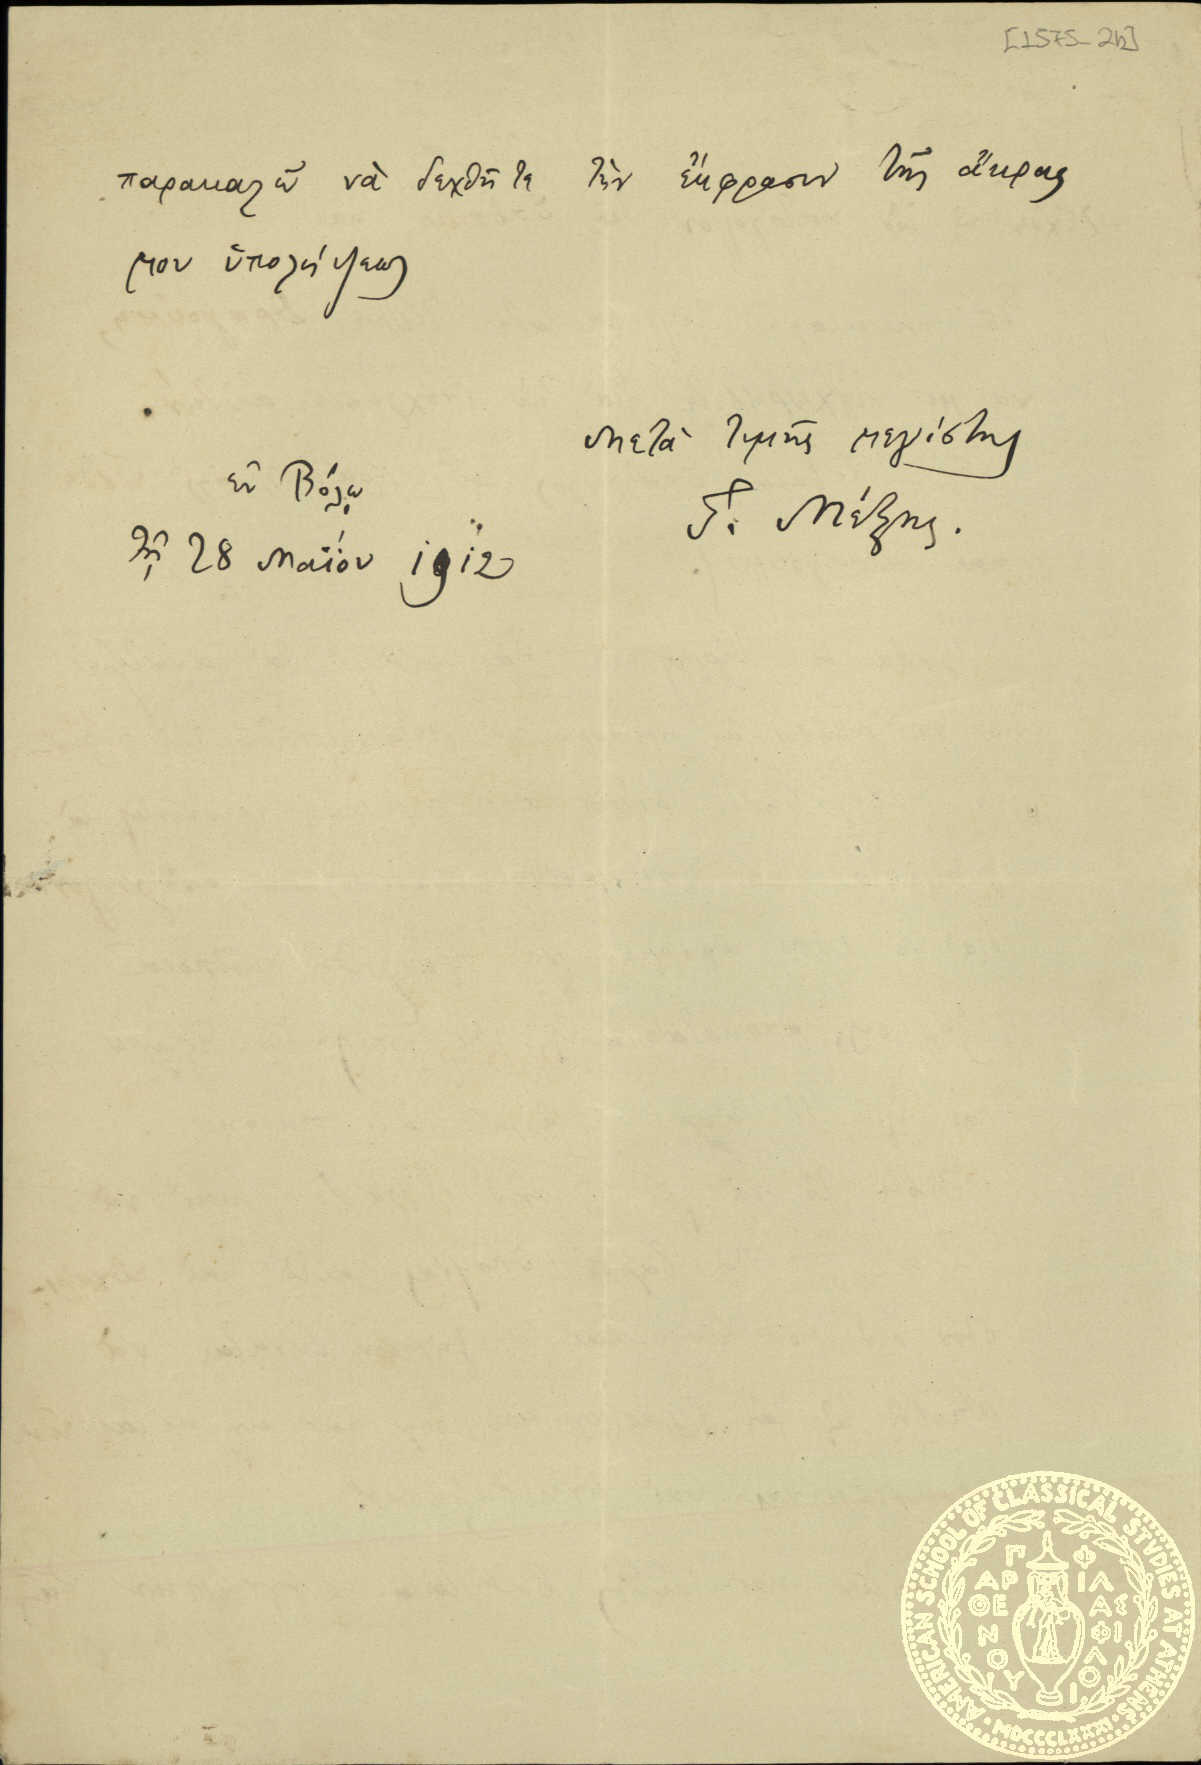 [1575-2b]
παρακαλῶ νὰ δεχθῆτε τὴν ἔκφρασιν τῆς ἄκρας
μου ὑπολήψεως
Μετὰ τιμῆς μεγίστης
Μέξης.
ἐν Βόλῳ
τῇ 28 Μαΐου 1912
AMERICAN SCHOOL OF CLASSICAL STVDIES AT ATHENS
ΠΑΡΘΕΝΟΥ ΦΙΛΑΣ ΦΙΛΟΙ
MDCCCLXXXI